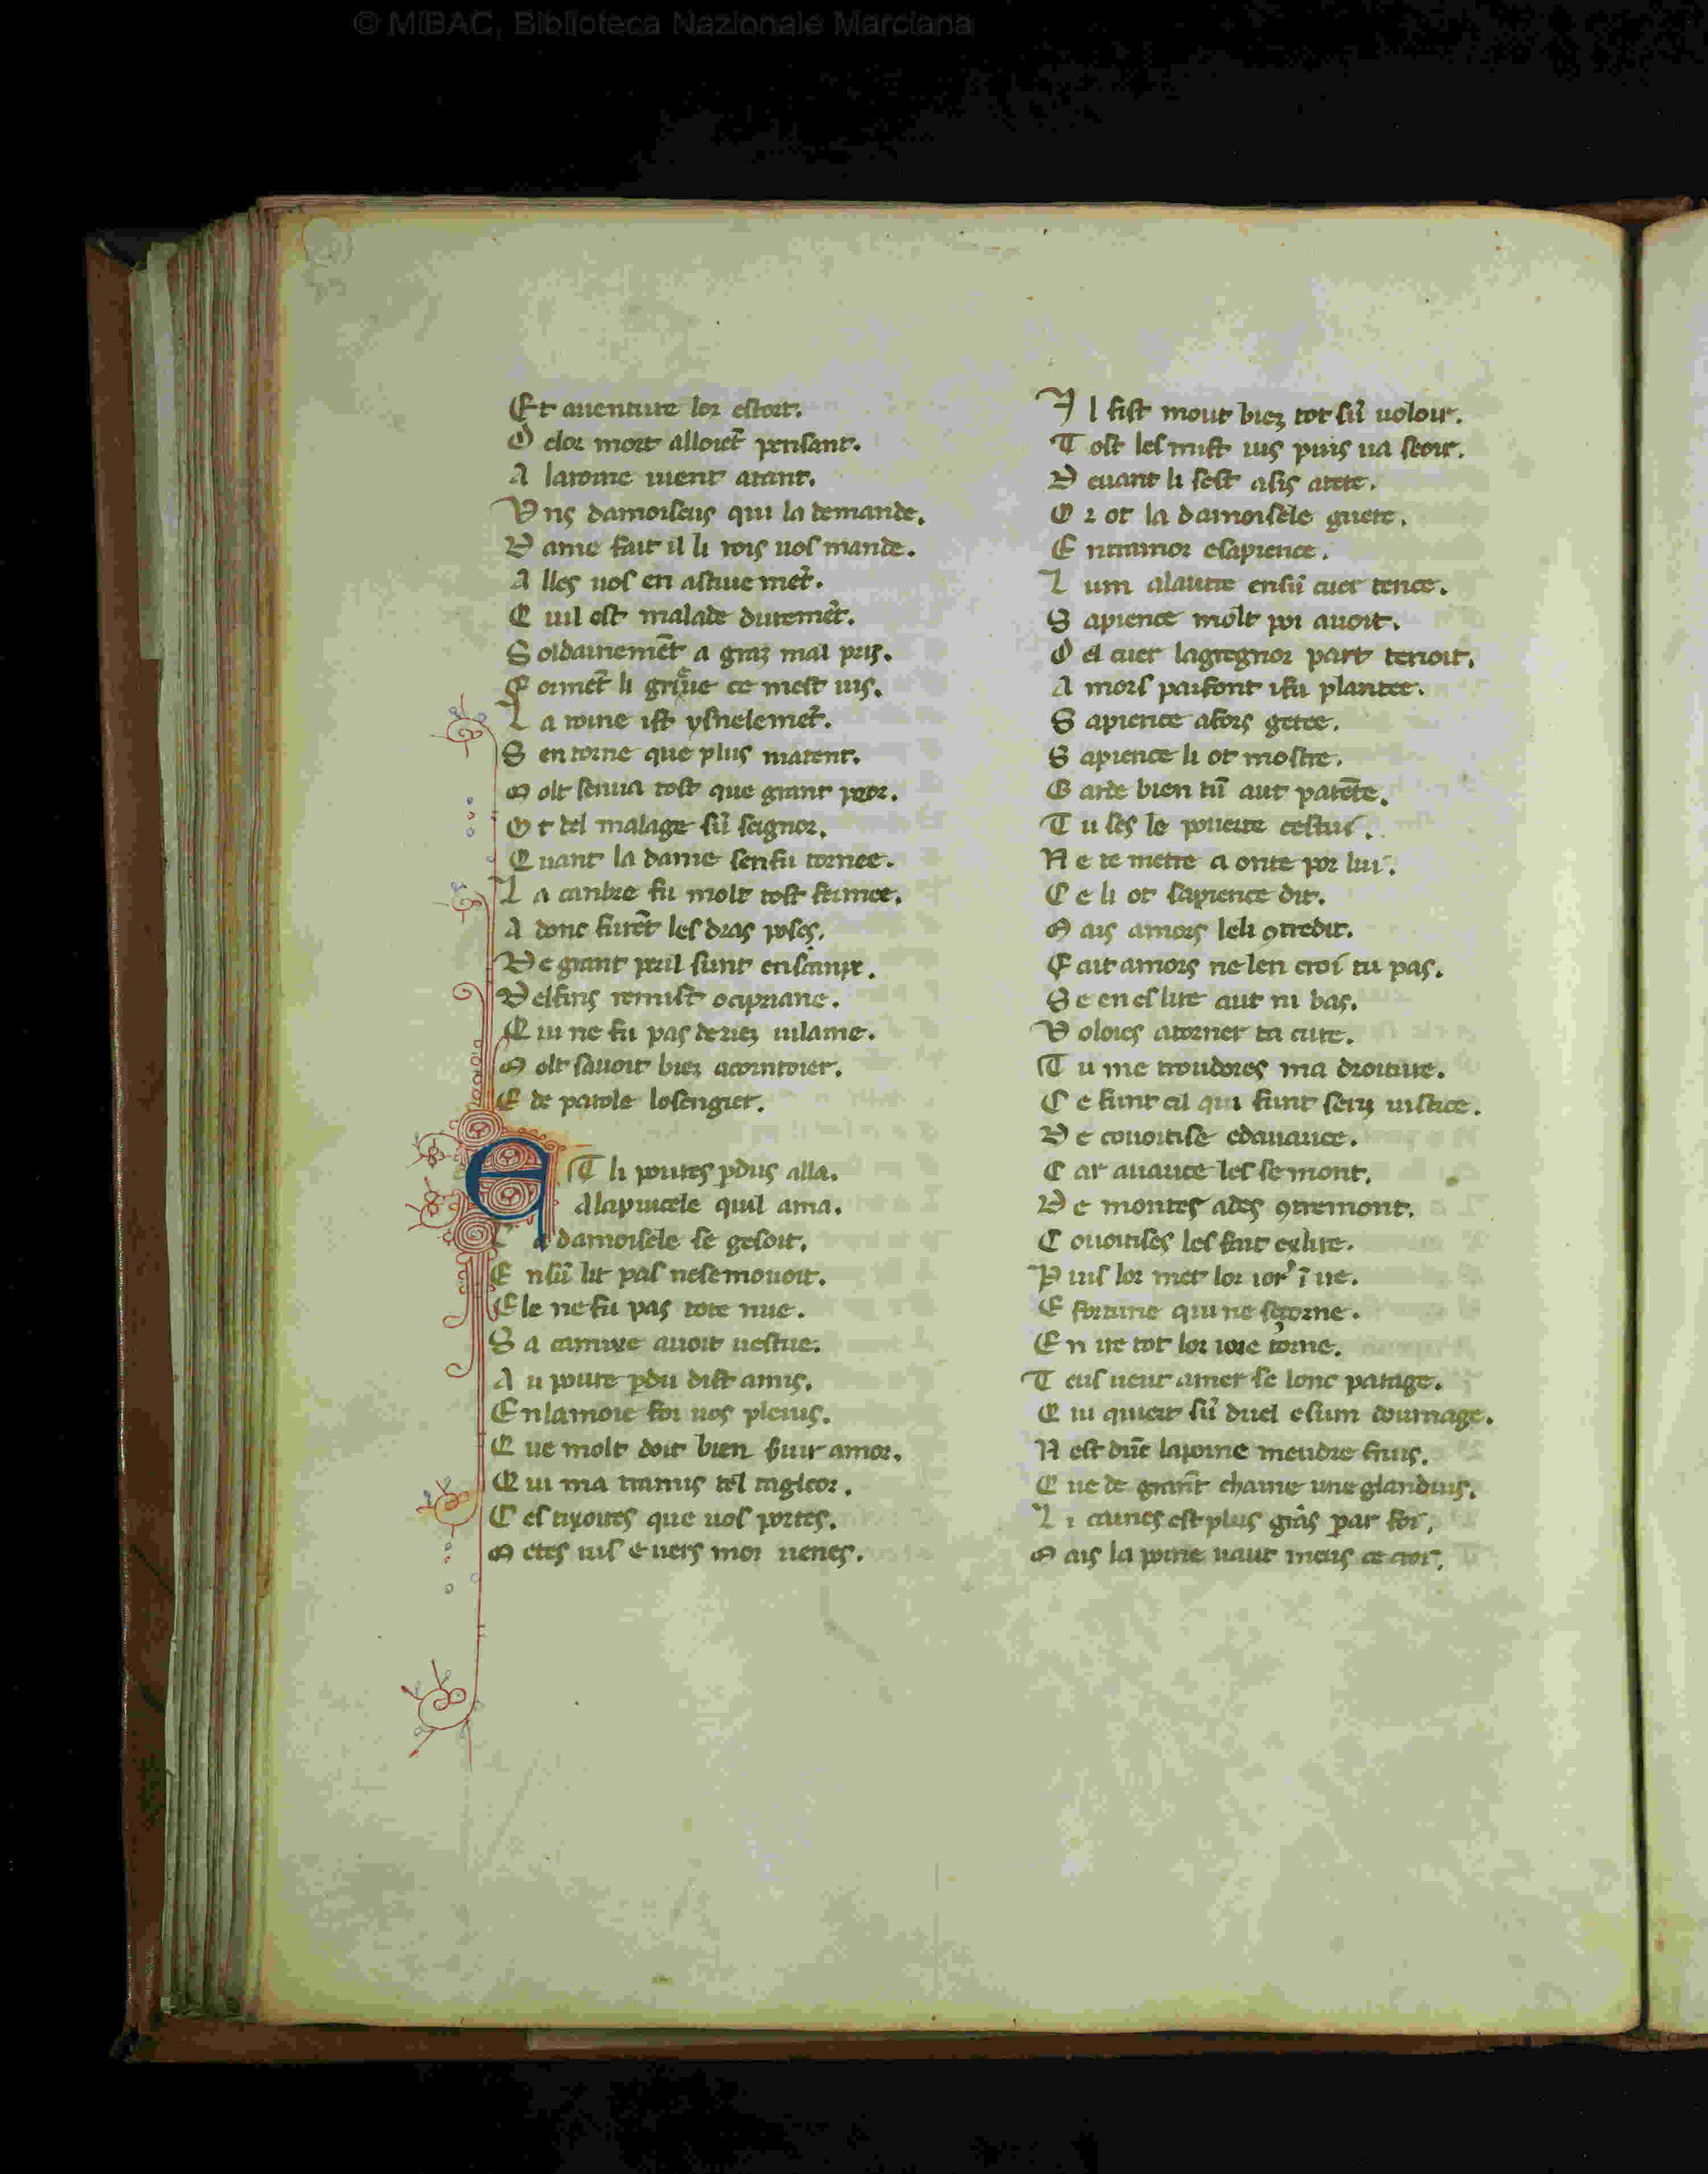 © MiBAC, Biblioteca Nazionale Marciana
Et auenture lor estort.
O elor mort alloiẽt pensant.
A laroine uient atant.
Vns damoiseus qui la demande.
D ame fait il li rois uos mande.
A lles uos en astiue mẽt.
Q uil est malade duremẽt.
S oldainemẽt a graz mal pris.
F ormẽt li grieue ce mest uis.
L a roine ist ysnelemẽt.
S en torne que plus natent.
M olt senua tost que grant peor.
Ot del malage sũ seignor.
Quant la dame senfu tornee.
L a canbre fu molt tost fermee.
A donc furẽt les dras poses.
De grant peril sunt
Delfins remist ocipriane.
Q ui ne fu pas deriez uilaine.
M olt sauoit biez acointoier.
E de parole losengier.
E T li poures pdus alla.
Alapucele quil ama.
L a damoisele se gesoit.
E nsũ lit pas nesemouoit.
Ele ne fu pas tote nue.
S a camixe auoit uestue.
A u poure pdu dist amis.
Enlamoie foi uos pleuis.
Q ue molt doit bien ẜuir amor.
Q ui ma tramis tel
C es que uos portes.
M etes ius e uers moi uenes.
I l fist mout biez tot sũ uoloir.
T ost les mist ius puis ua seoir.
D euant li sest asis atere.
O r ot la damoisele guere.
E ntramor esapience.
L um alautre ensũ cuer tence.
S apience molt poi auoit.
O el cuer lagregnor part tenoit.
A mors parfont ifu plantee.
S apience afors getee.
S apience li ot mostre.
G arde bien tũ aut parẽte.
T u ses le pouerte cestui.
N e te metre a onte por lui.
C e li ot sapience dit.
M ais amors leli ꝯtredit.
F ait amors nelen croi tu pas.
S e en eslire aut ni bas.
V oloies atorner ta cure.
T u me ma droiture.
C e funt cil qui sunt sers uistice.
D e couoitise edauarice.
C ar auarice les semont.
D e montes ades ꝯtremont.
C ouoitises les fait exlire.
P uis lor met lor ior ĩ ire.
E fortune qui ne
E n ire tot lor ioie torne.
T eus ueut amer se lonc parage.
Q ui quiert sũ duel esum doumage.
N est dũc lapome meudre fruis.
Q ue de grant chaine une glanduis.
L i caines est plus grãs par foi.
M ais la pome uaut meus ce croi.